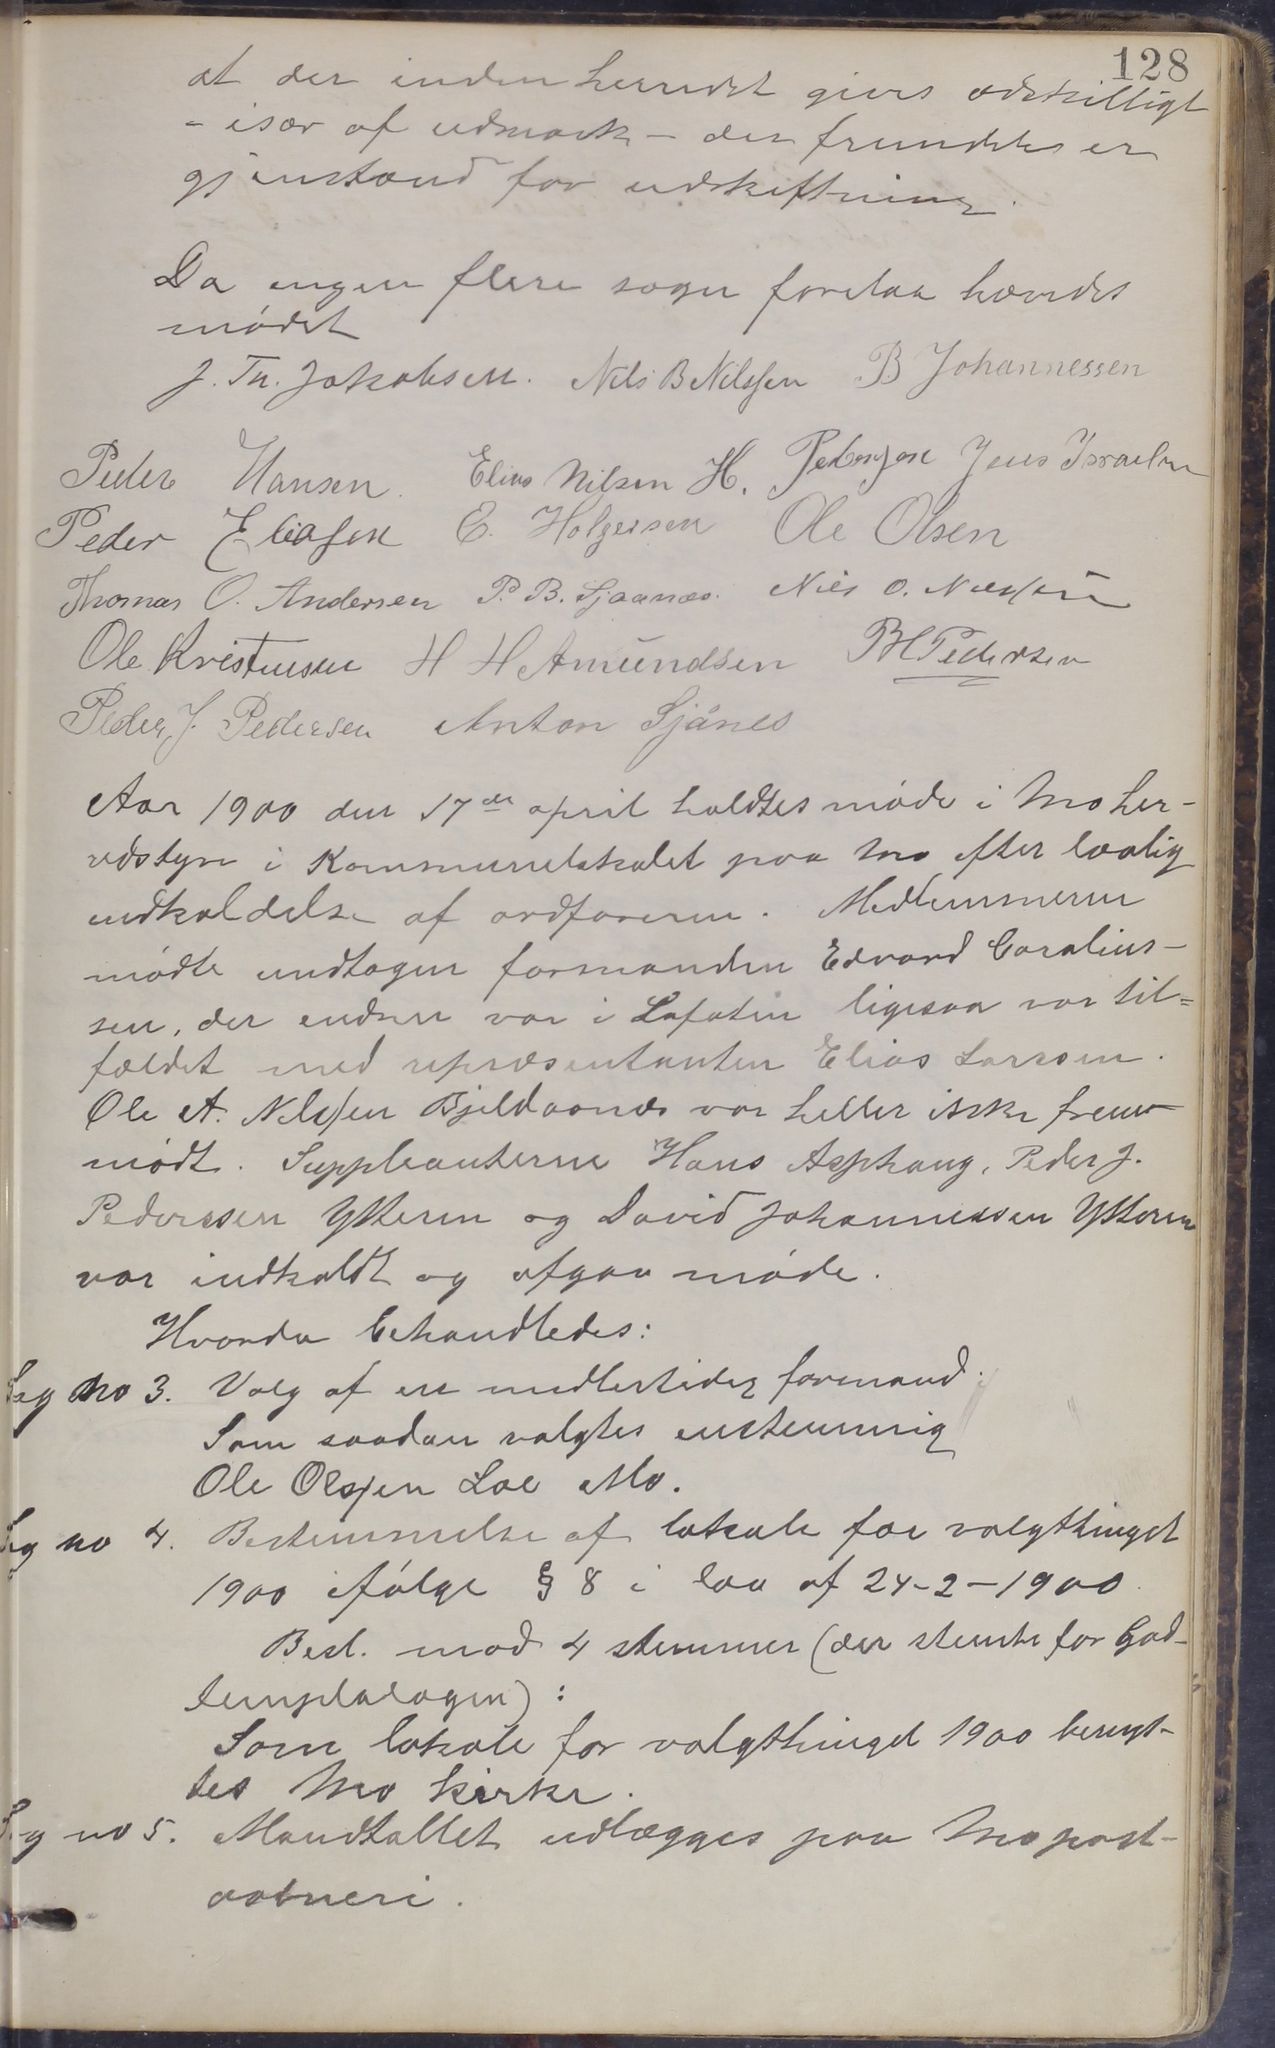 128
at der inden herredet gives adskilligt
- især af udmark - der fremdeles er
gjenstand for udskiftning.
Da ingen flere sager forelaa hævedes
mødet
J. Th. Jakobsen. Nils B Nilssen B Johannessen
Peder Hansen. Elias Nilsen H. Pedersen Jens Israelsen
Peder Eliassen E. Holgersen Ole Olsen
Thomas O. Andersen P. B. Sjaanæs. Nils O. Nilssen
Ole Kristensen H H Amundsen BHPedersen
Peder J. Pedersen Anton Sjånes
Aar 1900 den 17de april holdtes møde i Mo her-
redstyre i Kommunelokalet paa Mo efter lovlig
indkaldelse af ordføreren. Medlemmerne
mødte undtagen formanden Edvard Coralius-
sen, der endnu var i Lofoten ligesaa var til=
fældet med repræsentanten Elias Larssen.
Ole A. Nilssen Bjeldaanes var heller ikke frem-
mødt. Suppleanterne Hans Asphaug, Peder J.
Pederssen Ytteren og David Johannessen Ytteren
var indkaldt og afgav møde.
Hvorda behandledes:
Sag no 3. Valg af en midlertidig formand.
Som saadan valgtes enstemmig
Ole Olssen Loe Mo.
Sag no 4. Bestemmelse af lokale for valgthinget
1900 ifølge § 8 i lov af 24-2-1900.
Besl. mod 4 stemmer (der stemte for God-
templalogen):
Som lokale for valgthinget 1900 benyt-
tes Mo kirke.
Sag no 5. Mandtallet udlægges paa Mo post-
aabneri.